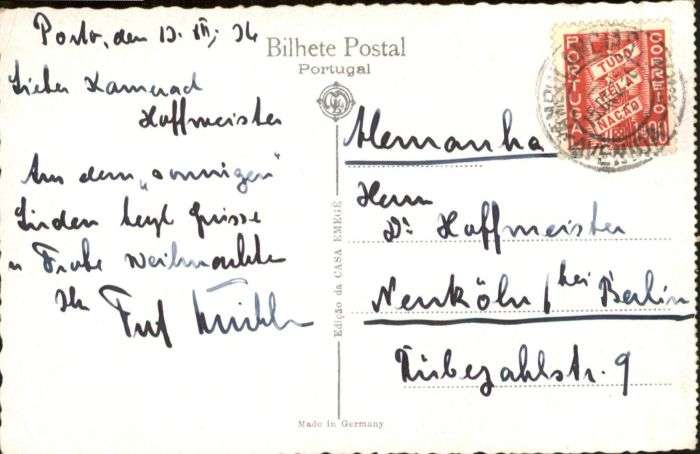 Porto, den 13. XII, 36
Bilhete Postal
Portugal
Lieber Kamerad
Hoffmeister
Aus dem „sonnigen"
Süden herzl Grüsse
u Frohe Weihnachten
Ihr
Edição da CASA EMEGÊ
Made in Germany
PORTUGAL
CORREIO
TUDO
PELA
NAÇÃO
Alemanha
Herrn
Dr. Hoffmeister
Neuköln / bei Berlin
Rübezahlstr. 9